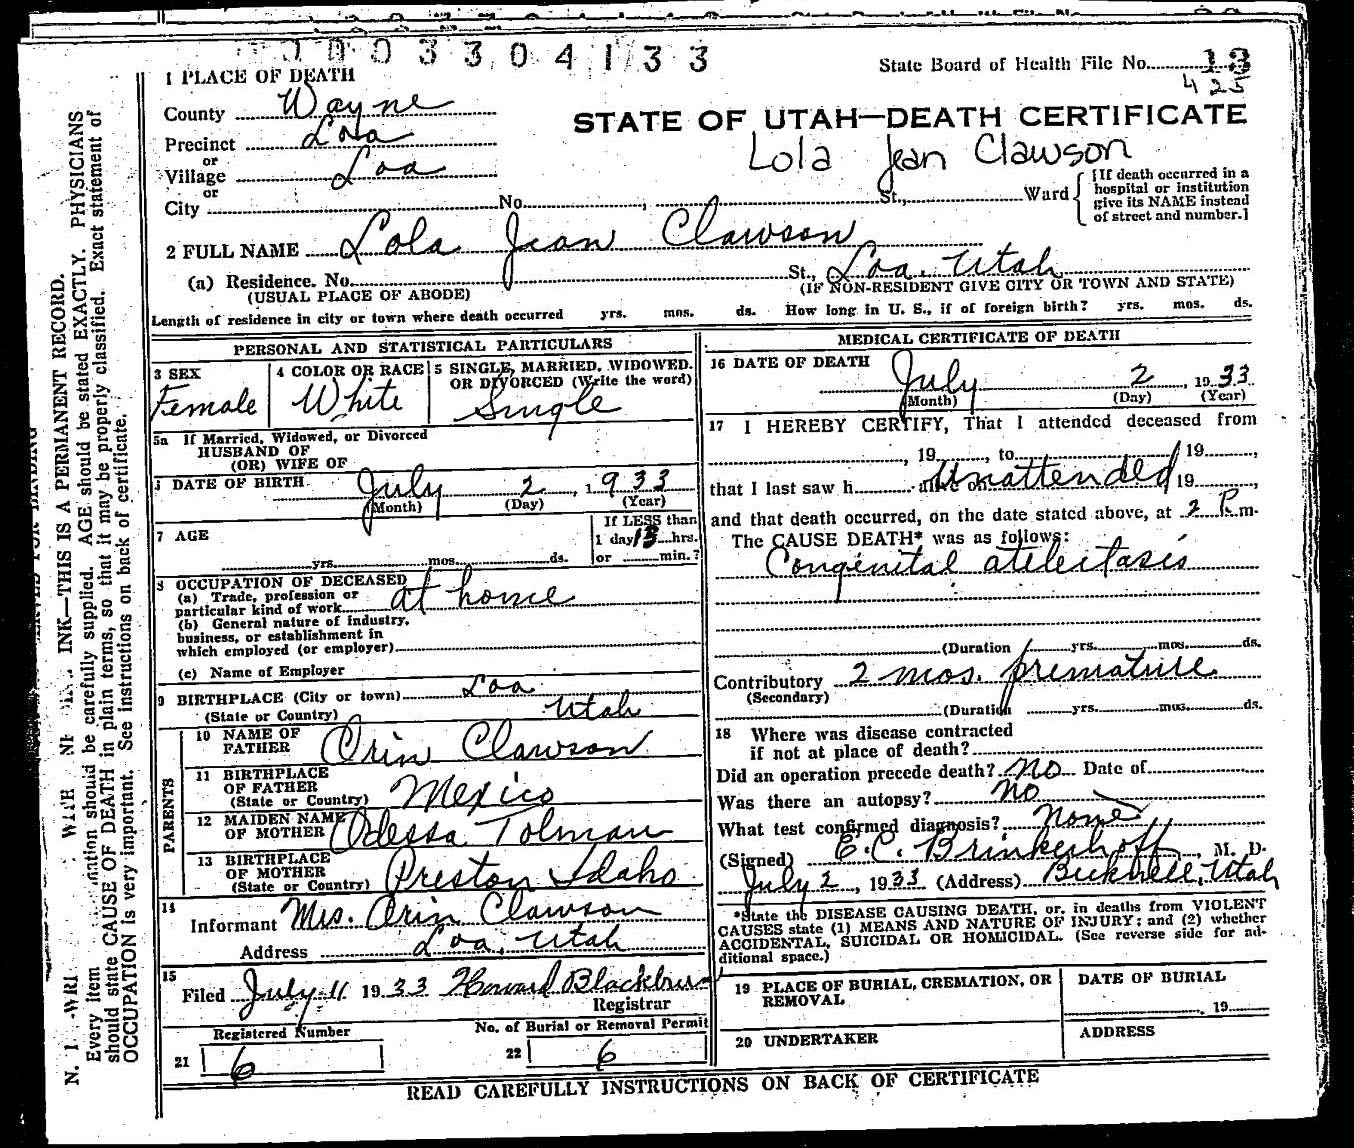 1003304133
1 PLACE OF DEATH
State Board of Health File No. 13
425
County Wayne
STATE OF UTAH—DEATH CERTIFICATE
Precinct Loa
Lola Jean Clawson
or
Village Loa
or
City No. , St., Ward
[If death occurred in a
hospital or institution
give its NAME instead
of street and number.]
2 FULL NAME Lola Jean Clawson
(a) Residence. No. St., Loa, Utah
(USUAL PLACE OF ABODE) (IF NON-RESIDENT GIVE CITY OR TOWN AND STATE)
Length of residence in city or town where death occurred yrs. mos. ds. How long in U. S., if of foreign birth? yrs. mos. ds.
PERSONAL AND STATISTICAL PARTICULARS
3 SEX
Female
4 COLOR OR RACE
White
5 SINGLE, MARRIED, WIDOWED.
OR DIVORCED (Write the word)
Single
5a If Married, Widowed, or Divorced
HUSBAND OF
(OR) WIFE OF
DATE OF BIRTH July 2, 1933
(Month) (Day) (Year)
7 AGE
yrs. mos. ds.
If LESS than
1 day 13 hrs.
or min.?
8 OCCUPATION OF DECEASED
(a) Trade, profession or
particular kind of work at home
(b) General nature of industry,
business, or establishment in
which employed (or employer)
(c) Name of Employer
9 BIRTHPLACE (City or town) Loa
(State or Country) Utah
PARENTS
10 NAME OF
FATHER Orin Clawson
11 BIRTHPLACE
OF FATHER
(State or Country) Mexico
12 MAIDEN NAME
OF MOTHER Odessa Tolman
13 BIRTHPLACE
OF MOTHER
(State or Country) Preston Idaho
14
Informant Mrs. Orin Clawson
Address Loa, Utah
15
Filed July 11 1933 Howard Blackburn
Registrar
Registered Number
21 6
No. of Burial or Removal Permit
22 6
MEDICAL CERTIFICATE OF DEATH
16 DATE OF DEATH
July 2, 1933
(Month) (Day) (Year)
17 I HEREBY CERTIFY, That I attended deceased from
, 19 , to 19 ,
that I last saw h Unattended 19 ,
and that death occurred, on the date stated above, at 2 P.m.
The CAUSE DEATH* was as follows:
Congenital atelectasis
(Duration yrs. mos. ds.
Contributory 2 mos. premature
(Secondary)
(Duration yrs. mos. ds.
18 Where was disease contracted
if not at place of death?
Did an operation precede death? no Date of
Was there an autopsy? no
What test confirmed diagnosis? None
(Signed) E. C. Brinkerhoff, M. D.
July 2, 1933 (Address) Bicknell, Utah
*State the DISEASE CAUSING DEATH, or, in deaths from VIOLENT
CAUSES state (1) MEANS AND NATURE OF INJURY; and (2) whether
ACCIDENTAL, SUICIDAL OR HOMICIDAL. (See reverse side for ad-
ditional space.)
19 PLACE OF BURIAL, CREMATION, OR
REMOVAL
DATE OF BURIAL
, 19
20 UNDERTAKER
ADDRESS
READ CAREFULLY INSTRUCTIONS ON BACK OF CERTIFICATE
INK—THIS IS A PERMANENT RECORD.
Every item should be carefully supplied. AGE should be stated EXACTLY. PHYSICIANS
should state CAUSE OF DEATH in plain terms, so that it may be properly classified. Exact statement of
OCCUPATION is very important. See instructions on back of certificate.